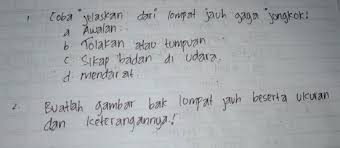 1. Coba jelaskan dari lompat jauh gaya jongkok!
a Awalan
b Tolakan atau tumpuan
c Sikap badan di udara
d. mendarat.
2. Buatlah gambar bak lompat jauh beserta ukuran
dan keterangannya!